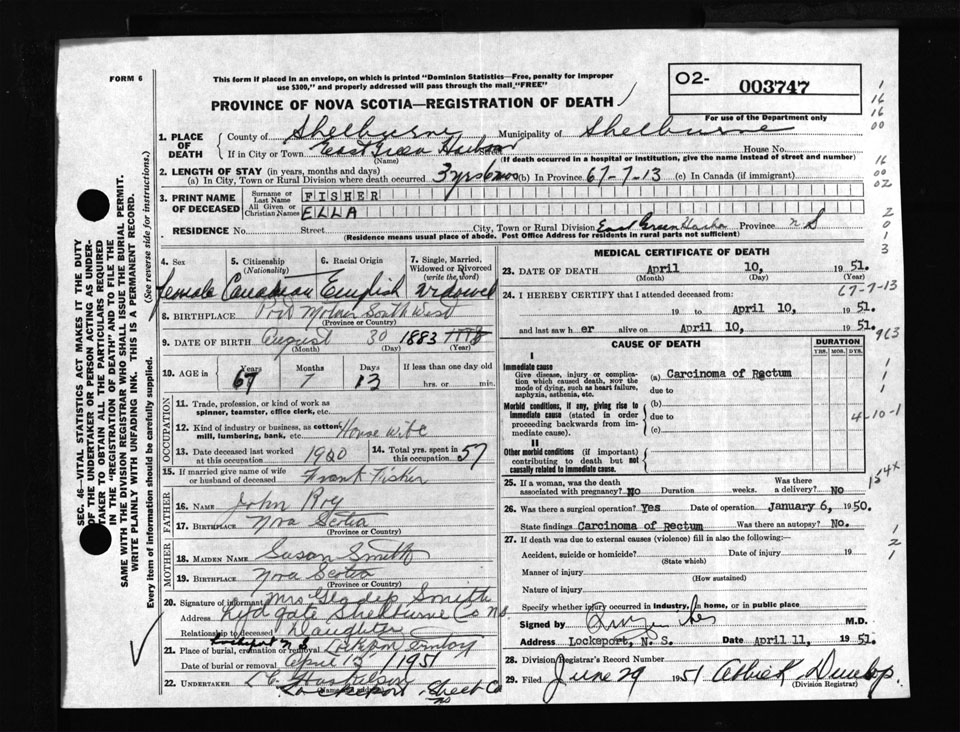 FORM 6
This form if placed in an envelope, on which is printed "Dominion Statistics—Free, penalty for improper
use $300," and properly addressed will pass through the mail, "FREE"
PROVINCE OF NOVA SCOTIA—REGISTRATION OF DEATH
O2-
003747
For use of the Department only
SEC. 46—VITAL STATISTICS ACT MAKES IT THE DUTY
OF THE UNDERTAKER OR PERSON ACTING AS UNDER-
TAKER TO OBTAIN ALL THE PARTICULARS REQUIRED
IN THE "REGISTRATION OF DEATH" AND TO FILE THE
SAME WITH THE DIVISION REGISTRAR WHO SHALL ISSUE THE BURIAL PERMIT.
WRITE PLAINLY WITH UNFADING INK. THIS IS A PERMANENT RECORD.
Every item of information should be carefully supplied. (See reverse side for instructions.)
1. PLACE OF DEATH
County of Shelburne Municipality of Shelburne
If in City or Town East Green Harbour Street House No.
(Name) (If death occurred in a hospital or institution, give the name instead of street and number)
2. LENGTH OF STAY (in years, months and days)
(a) In City, Town or Rural Division where death occurred 3 yrs 6 mos (b) In Province 67-7-13 (c) In Canada (if immigrant)
3. PRINT NAME OF DECEASED
Surname or Last Name FISHER
All Given or Christian Names ELLA
RESIDENCE No. Street City, Town or Rural Division East Green Harbor Province N S
(Residence means usual place of abode. Post Office Address for residents in rural parts not sufficient)
4. Sex 5. Citizenship (Nationality) 6. Racial Origin 7. Single, Married, Widowed or Divorced (write the word)
female Canadian English widowed
8. BIRTHPLACE Port Mouton South West
(Province or Country)
9. DATE OF BIRTH August 30 1883
(Month) (Day) (Year)
10. AGE in Years Months Days If less than one day old
67 7 13 hrs. or min.
OCCUPATION
11. Trade, profession, or kind of work as spinner, teamster, office clerk, etc.
12. Kind of industry or business, as cotton mill, lumbering, bank, etc. House Wife
13. Date deceased last worked at this occupation 1920 14. Total yrs. spent in this occupation 57
15. If married give name of wife or husband of deceased Frank Fisher
FATHER
16. NAME John Roy
17. BIRTHPLACE Nova Scotia
(Province or Country)
MOTHER
18. MAIDEN NAME Susan Smith
19. BIRTHPLACE Nova Scotia
(Province or Country)
20. Signature of informant Mrs Gladys Smith
Address Lydgate Shelburne Co NS
Relationship to deceased Daughter
Lockeport N S
21. Place of burial, cremation or removal
Date of burial or removal April 13 /1951
22. UNDERTAKER
Lockeport Shelb Co
NS
MEDICAL CERTIFICATE OF DEATH
23. DATE OF DEATH April 10, 1951.
(Month) (Day) (Year)
24. I HEREBY CERTIFY that I attended deceased from: 67-7-13
19 to April 10, 1951.
and last saw her alive on April 10, 1951.
CAUSE OF DEATH
DURATION
YRS. MOS. DYS.
I
Immediate cause
Give disease, injury or complication which caused death, NOT the mode of dying, such as heart failure, asphyxia, asthenia, etc.
(a) Carcinoma of Rectum
due to
Morbid conditions, if any, giving rise to immediate cause (stated in order proceeding backwards from immediate cause).
(b)
due to
(c)
4-10-1
II
Other morbid conditions (if important) contributing to death but not causally related to immediate cause.
154x
25. If a woman, was the death associated with pregnancy? No Duration weeks. Was there a delivery? No
26. Was there a surgical operation? Yes Date of operation January 6, 1950.
State findings Carcinoma of Rectum Was there an autopsy? No.
27. If death was due to external causes (violence) fill in also the following:—
Accident, suicide or homicide? Date of injury 19
(State which)
Manner of injury
(How sustained)
Nature of injury
Specify whether injury occurred in industry, in home, or in public place
Signed by M.D.
Address Lockeport, N. S. Date April 11, 1951.
28. Division Registrar's Record Number
29. Filed June 29 1951 Abbie K Dunlop.
(Division Registrar)